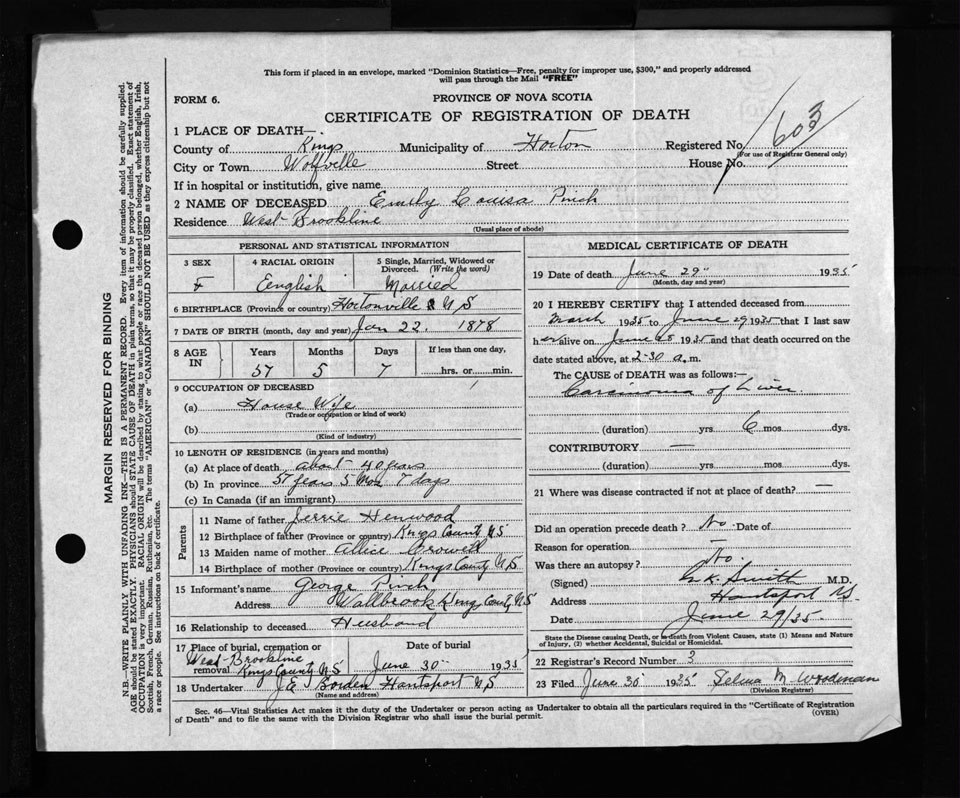 This form if placed in an envelope, marked "Dominion Statistics—Free, penalty for improper use, $300," and properly addressed
will pass through the Mail "FREE"
FORM 6.
PROVINCE OF NOVA SCOTIA
CERTIFICATE OF REGISTRATION OF DEATH
603
1 PLACE OF DEATH—
County of Kings Municipality of Horton Registered No.
(For use of Registrar General only)
City or Town Wolfville Street House No.
If in hospital or institution, give name
2 NAME OF DECEASED Emily Louisa Pinch
Residence West Brookline
(Usual place of abode)
PERSONAL AND STATISTICAL INFORMATION
3 SEX 4 RACIAL ORIGIN 5 Single, Married, Widowed or
Divorced. (Write the word)
F Eenglish Married
6 BIRTHPLACE (Province or country) Hortonville N S
7 DATE OF BIRTH (month, day and year) Jan 22. 1878
8 AGE IN Years Months Days If less than one day,
57 5 7 hrs. or min.
9 OCCUPATION OF DECEASED
(a) House Wife
(Trade or occupation or kind of work)
(b)
(Kind of industry)
10 LENGTH OF RESIDENCE (in years and months)
(a) At place of death about 40 years
(b) In province 57 years 5 Mos 7 days
(c) In Canada (if an immigrant)
Parents
11 Name of father Jerrie Henwood
12 Birthplace of father (Province or country) Kings County N S
13 Maiden name of mother Allice Crowell
14 Birthplace of mother (Province or country) Kings County N S
15 Informant's name George Pinch
Address Wallbrook Kings County N S
16 Relationship to deceased Husband
17 Place of burial, cremation or Date of burial
removal West-Brookline
Kings County N S June 30 1935
18 Undertaker J E Borden Hantsport N S
(Name and address)
MEDICAL CERTIFICATE OF DEATH
19 Date of death June 29" 1935
(Month, day and year)
20 I HEREBY CERTIFY that I attended deceased from
March 1935 to June 29 1935 that I last saw
her alive on June 28 1935 and that death occurred on the
date stated above, at 2-30 a. m.
The CAUSE OF DEATH was as follows:—
Carcinoma of Liver.
(duration) yrs 6 mos. dys.
CONTRIBUTORY —
(duration) yrs. mos. dys.
21 Where was disease contracted if not at place of death? —
Did an operation precede death? No. Date of
Reason for operation —
Was there an autopsy? No.
(Signed) Smith M.D.
Address Hantsport N.S.
Date June 29/35.
State the Disease causing Death, or in death from Violent Causes, state (1) Means and Nature
of Injury, (2) whether Accidental, Suicidal or Homicidal.
22 Registrar's Record Number 3
23 Filed June 30 1935 Selina M. Woodman
(Division Registrar)
Sec. 46—Vital Statistics Act makes it the duty of the Undertaker or person acting as Undertaker to obtain all the particulars required in the "Certificate of Registration
of Death" and to file the same with the Division Registrar who shall issue the burial permit.
(OVER)
MARGIN RESERVED FOR BINDING
N.B.—WRITE PLAINLY WITH UNFADING INK—THIS IS A PERMANENT RECORD. Every item of information should be carefully supplied.
AGE should be stated EXACTLY. PHYSICIANS should STATE CAUSE OF DEATH in plain terms, so that it may be properly classified. Exact statement of
OCCUPATION is very important. RACIAL ORIGIN will be described by stating to what people or race the deceased person belonged, whether English, Irish,
Scottish, French, German, Russian, Ruthenian, etc. The terms "AMERICAN" or "CANADIAN" SHOULD NOT BE USED as they express citizenship but not
a race or people. See instructions on back of certificate.